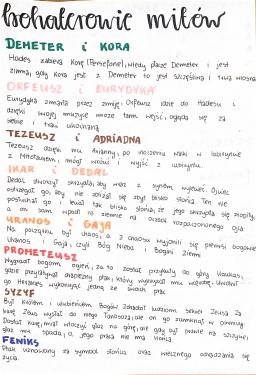 bohaterowie mitów
DEMETER i KORA
Hades zabiera Korę (Persefonę), wtedy płacze Demeter i jest
zimna, gdy Kora jest z Demeter to jest szczęśliwa i trwa wiosna
ORFEUSZ i EURYDYKA
Eurydyka zmarła przez żmiję, Orfeusz idzie do Hadesu i
dzięki swojej muzyce może tam wejść, ogląda się za
siebie i traci ukochaną
TEZEUSZ i ADRIADNA
Tezeusz dzięki nici Arianny, po zabiciu walki w labiryncie
z Minotaurem, mógł wrócić i wyjść z labiryntu.
IKAR i DEDAL
Dedal stworzył skrzydła, aby wraz z synem wylecieć. Ojciec
ostrzegał go, aby nie zbliżał się zbyt blisko słońca. Ten nie
posłuchał go i leciał tak blisko słońca, że jego skrzydła się stopiły,
a on sam wpadł na ziemię na
URANOS i GAJA
Na początku był chaos, a z chaosu wyłonili się pierwsi bogowie
Uranos i Gaja, czyli Bóg Nieba i Bogini Ziemi
PROMETEUSZ
Wykradł bogom ogień, za to został przykuty do góry Kaukaz,
gdzie przylatywał drapieżny ptak, który wyjadał mu wątrobę. Uwolnił
go Herakles wykonując jedną ze swoich prac
SYZYF
Był królem i ulubieniem Bogów. Zdradził ludziom sekret Zeusa. Za
karę Zeus wysłał do niego Tanatosa, ale on go zamknął w
Dostał karę, miał włożyć głaz na górę, ale gdy był prawie na szczycie,
głaz mu spadał, a jego praca nie ma końca.
FENIKS
Ptak uznawany za symbol słońca oraz wiecznego odradzania się
życia.